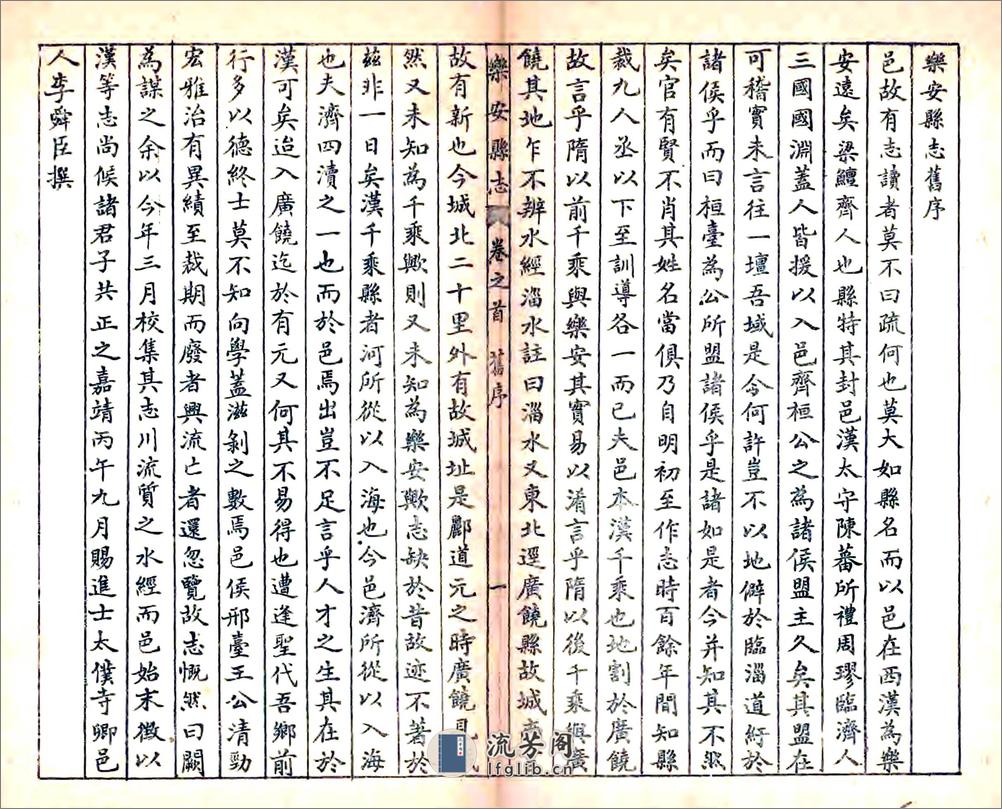 樂安縣志舊序
邑故有志讀者莫不曰疏何也莫大如縣名而以邑在西漢為樂
安遠矣梁鱣齊人也縣特其封邑漢太守陳蕃所禮周璆臨濟人
三國國淵蓋人皆援以入邑齊桓公之為諸侯盟主久矣其盟在
可稽實未言往一壇吾域是今何許豈不以地僻於臨淄道紆於
諸侯乎而曰桓臺為公所盟諸侯乎是諸如是者今并知其不然
矣官有賢不肖其姓名當俱乃自明初至作志時百餘年間知縣
裁九人丞以下至訓導各一而已夫邑本漢千乘也地割於廣饒
故言乎隋以前千乘與樂安其實易以淆言乎隋以後千乘與廣
饒其地乍不辨水經淄水註曰淄水又東北逕廣饒縣故城
樂安縣志 卷之首 舊序 一
故有新也今城北二十里外有故城址是酈道元之時廣饒
然又未知為千乘歟則又未知為樂安歟志缺於昔故迹不著於
茲非一日矣漢千乘縣者河所從以入海也今邑濟所從以入海
也夫濟四瀆之一也而於邑焉出豈不足言乎人才之生其在於
漢可矣迨入廣饒迄於有元又何其不易得也遭逢聖代吾鄉前
行多以德終士莫不知向學蓋滋剝之數焉邑侯邢臺王公清勁
宏雅治有異績至裁期而廢者興流亡者還忽覽故志慨然曰闕
為謀之余以今年三月校集其志川流質之水經而邑始末徵以
漢等志尚候諸君子共正之嘉靖丙午九月賜進士太僕寺卿邑
人李舜臣撰
流芳閣
lfglib.cn